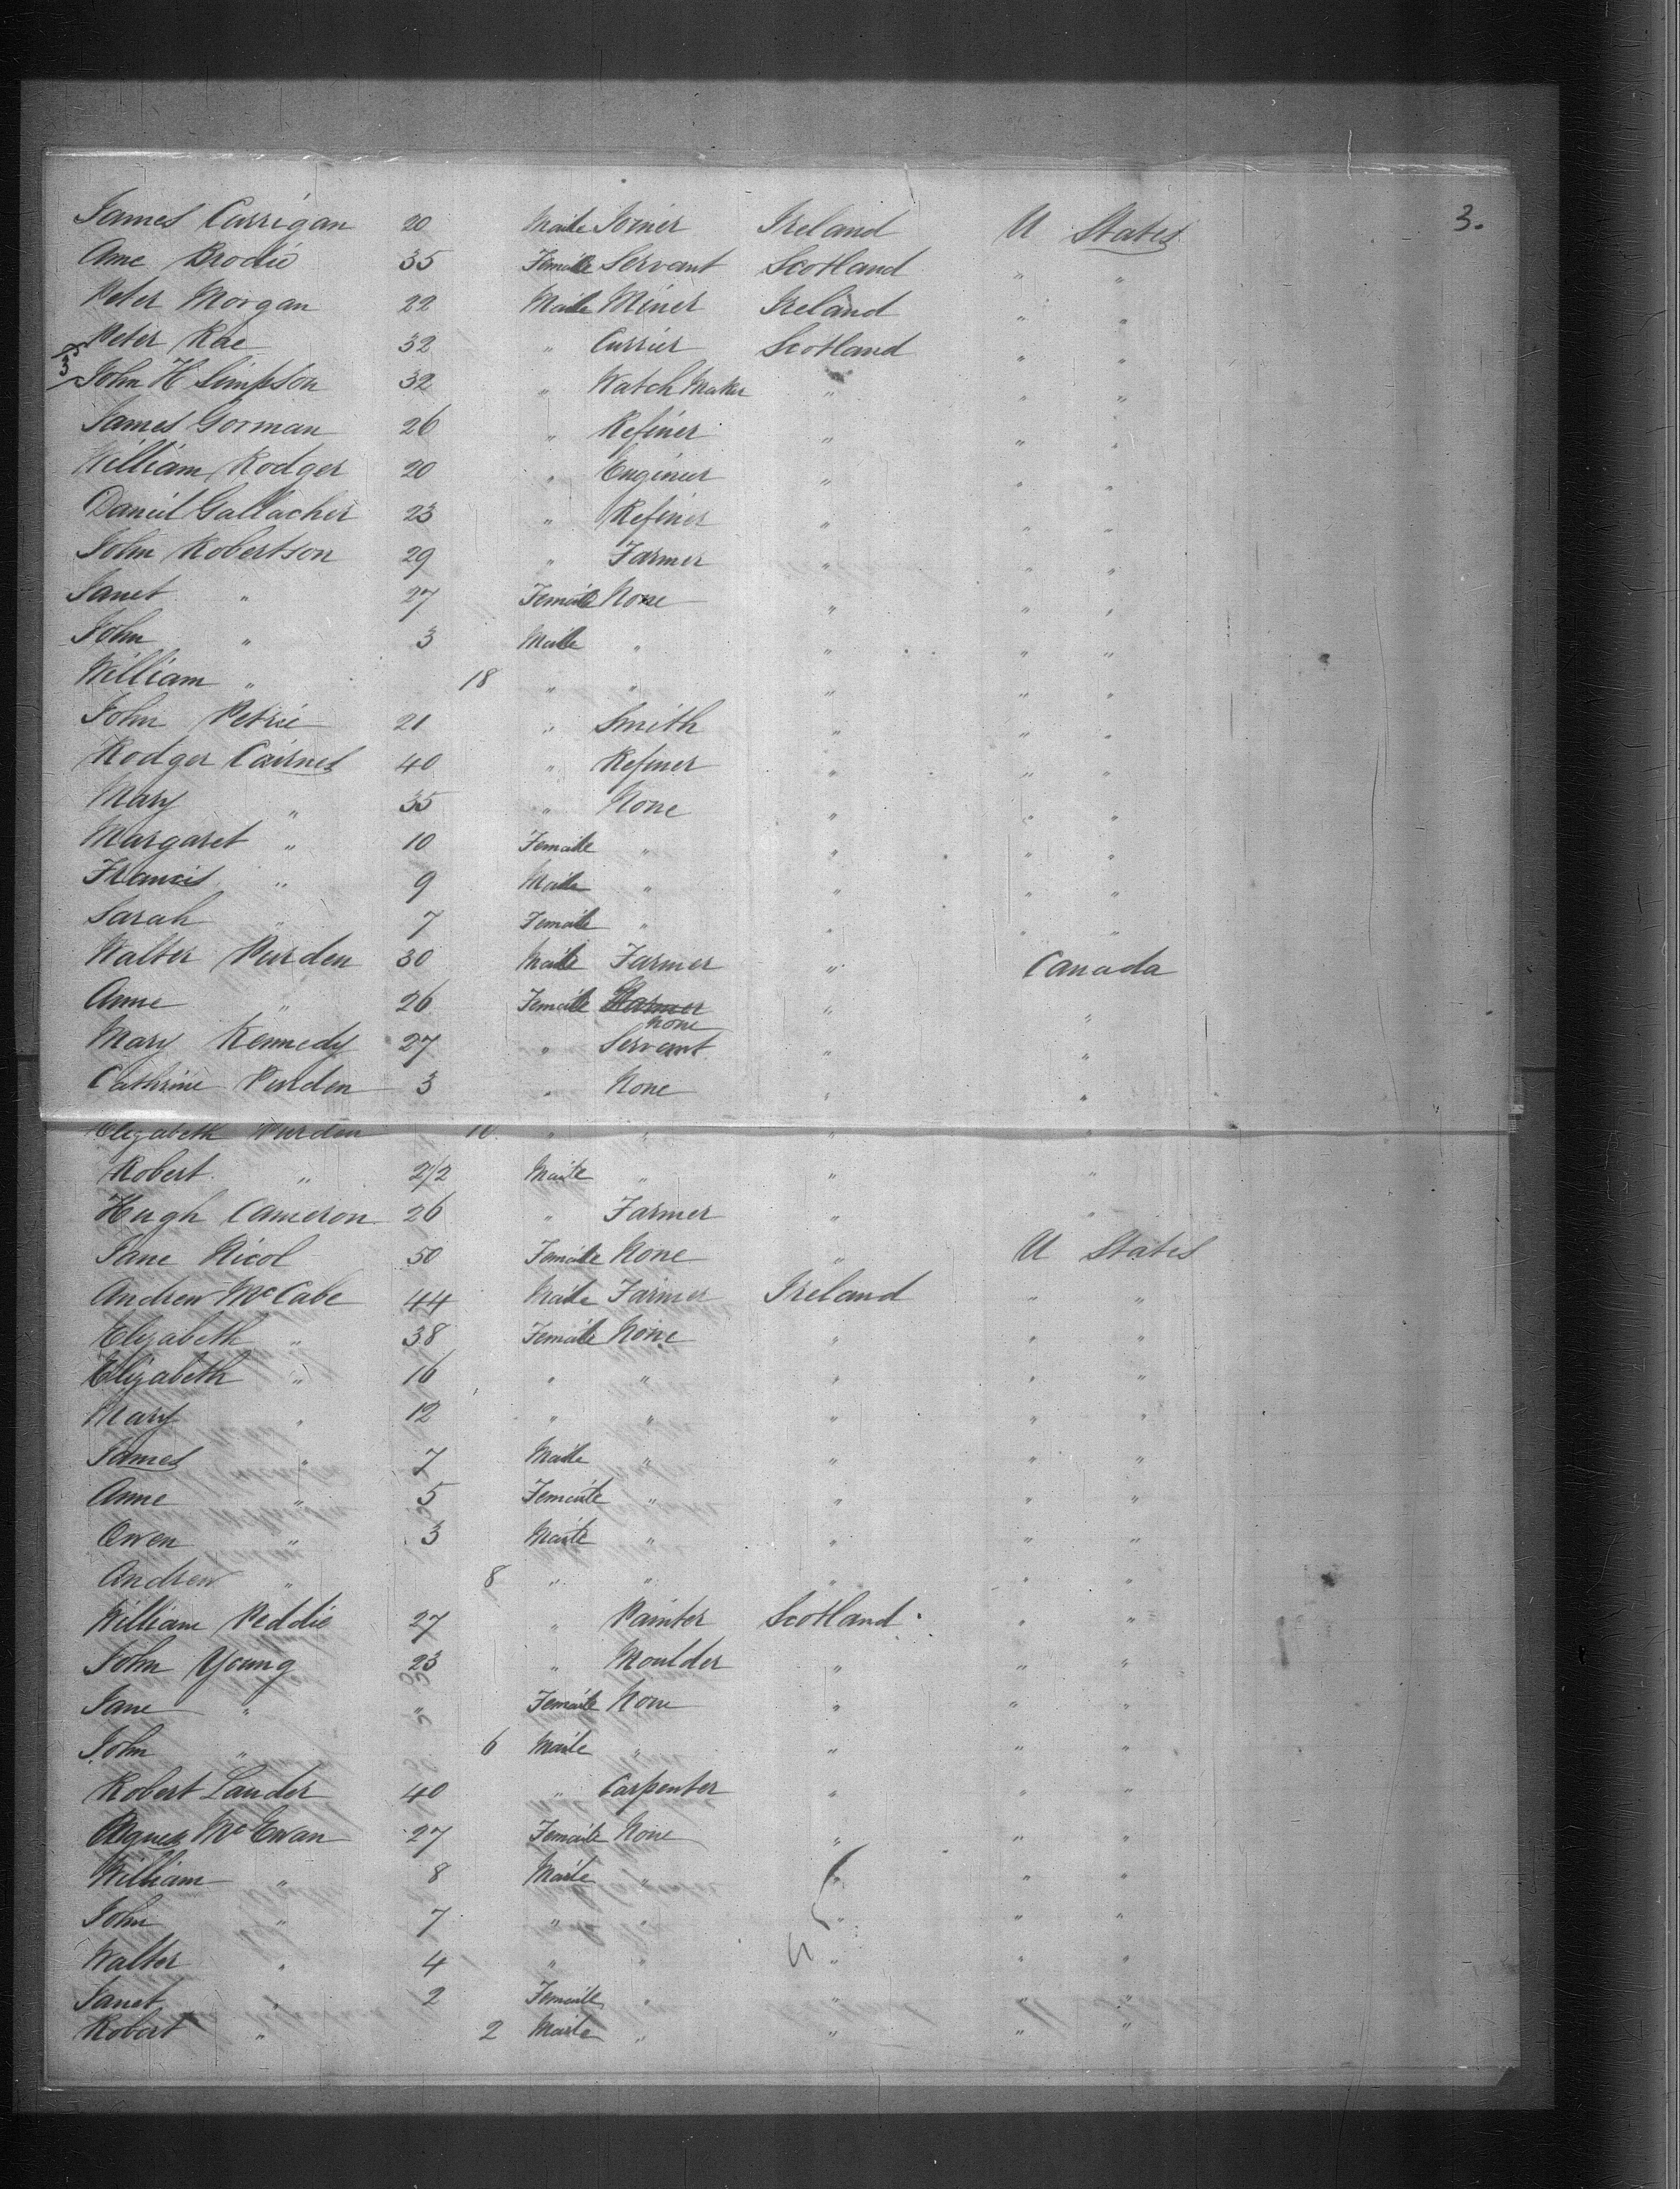 3.
James Carrigan 20 Male Joiner Ireland U States
Ann Brodie 35 Female Servant Scotland " "
Peter Morgan 22 Male Miner Ireland " "
Peter Rae 32 " Currier Scotland " "
John H Simpson 32 " Watch Maker " " "
James Gorman 26 " Refiner " " "
William Rodger 20 " Engineer " " "
Daniel Gallacher 23 " Refiner " " "
John Robertson 29 " Farmer " " "
Janet " 27 Female None " " "
John " 3 Male " " " "
William " 18 " " " " "
John Petrie 21 " Smith " " "
Rodger Cairnes 40 " Refiner " " "
Mary " 35 " None " " "
Margaret " 10 Female " " " "
Francis " 9 Male " " " "
Sarah " 7 Female " " " "
Walter Purden 30 Male Farmer " Canada
Anne " 26 Female Farmer " "
None
Mary Kennedy 27 " Servant " "
Cathrine Purden 3 " None " "
Elizabeth Purden 10 " " " "
Robert " 2/2 Male " " "
Hugh Cameron 26 " Farmer " "
Jane Nicol 50 Female None " U States
Andrew McCabe 44 Male Farmer Ireland " "
Elizabeth " 38 Female None " " "
Elizabeth " 16 " " " " "
Mary " 12 " " " " "
James " 7 Male " " " "
Anne " 5 Female " " " "
Owen " 3 Male " " " "
Andrew " 8 " " " " "
William Peddie 27 " Painter Scotland " "
John Young 23 " Moulder " " "
Jane " " Female None " " "
John " 6 Male " " " "
Robert Lander 40 " Carpenter " " "
Agnes McEwan 27 Female None " " "
William " 8 Male " " " "
John " 7 " " " " "
Walter " 4 " " " " "
Janet " 2 Female " " " "
Robert " 2 Male " " " "